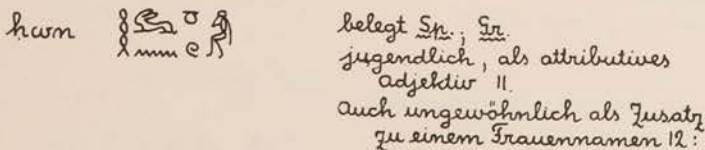 hwn belegt Sp.; Gr.
jugendlich, als attributives
adjektiv 11.
auch ungewöhnlich als Zusatz
zu einem Frauennamen 12: